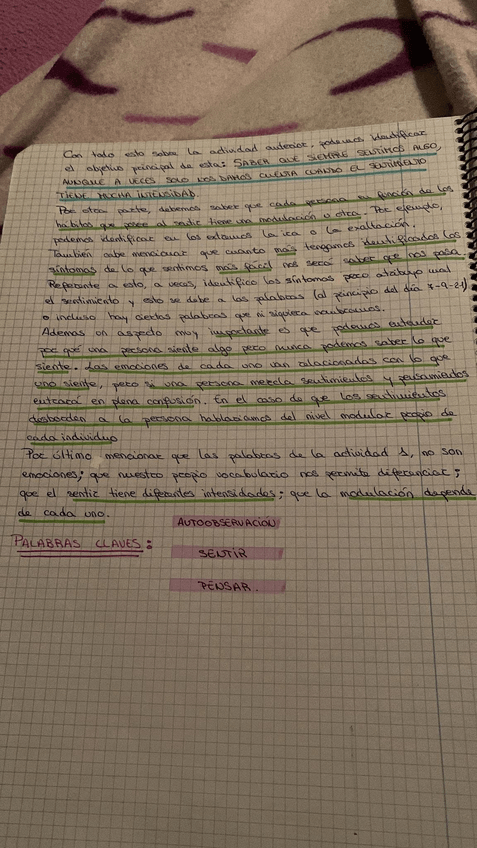 Con todo esto sobre la actividad anterior, podemos identificar
el objetivo principal de esta: SABER QUE SIEMPRE SENTIMOS ALGO,
AUNQUE A VECES SOLO NOS DAMOS CUENTA CUANDO EL SENTIMIENTO
TIENE MUCHA INTENSIDAD
Por otra parte, debemos saber que cada persona en función de los
hábitos que posee al sentir tiene una modulación u otra. Por ejemplo,
podemos identificar en los extremos la ira o la exaltación.
También cabe mencionar que cuanto más tengamos identificados los
síntomas de lo que sentimos más fácil nos será saber que nos pasa.
Referente a esto, a veces, identifico los síntomas pero atribuyo mal
el sentimiento y esto se debe a las palabras (al principio del día 7-9-21)
o incluso hay ciertas palabras que ni siquiera nombramos.
Además un aspecto muy importante es que podemos entender
por qué una persona siente algo pero nunca podemos saber lo que
siente. Las emociones de cada uno van relacionadas con lo que
uno siente, pero si una persona mezcla sentimientos y pensamientos
entrará en plena confusión. En el caso de que los sentimientos
desborden a la persona hablaríamos del nivel modular propio de
cada individuo
Por último mencionar que las palabras de la actividad 1, no son
emociones; que nuestro propio vocabulario nos permite diferenciar;
que el sentir tiene diferentes intensidades; que la modulación depende
de cada uno.
PALABRAS CLAVES:
AUTOOBSERVACIÓN
SENTIR
PENSAR.